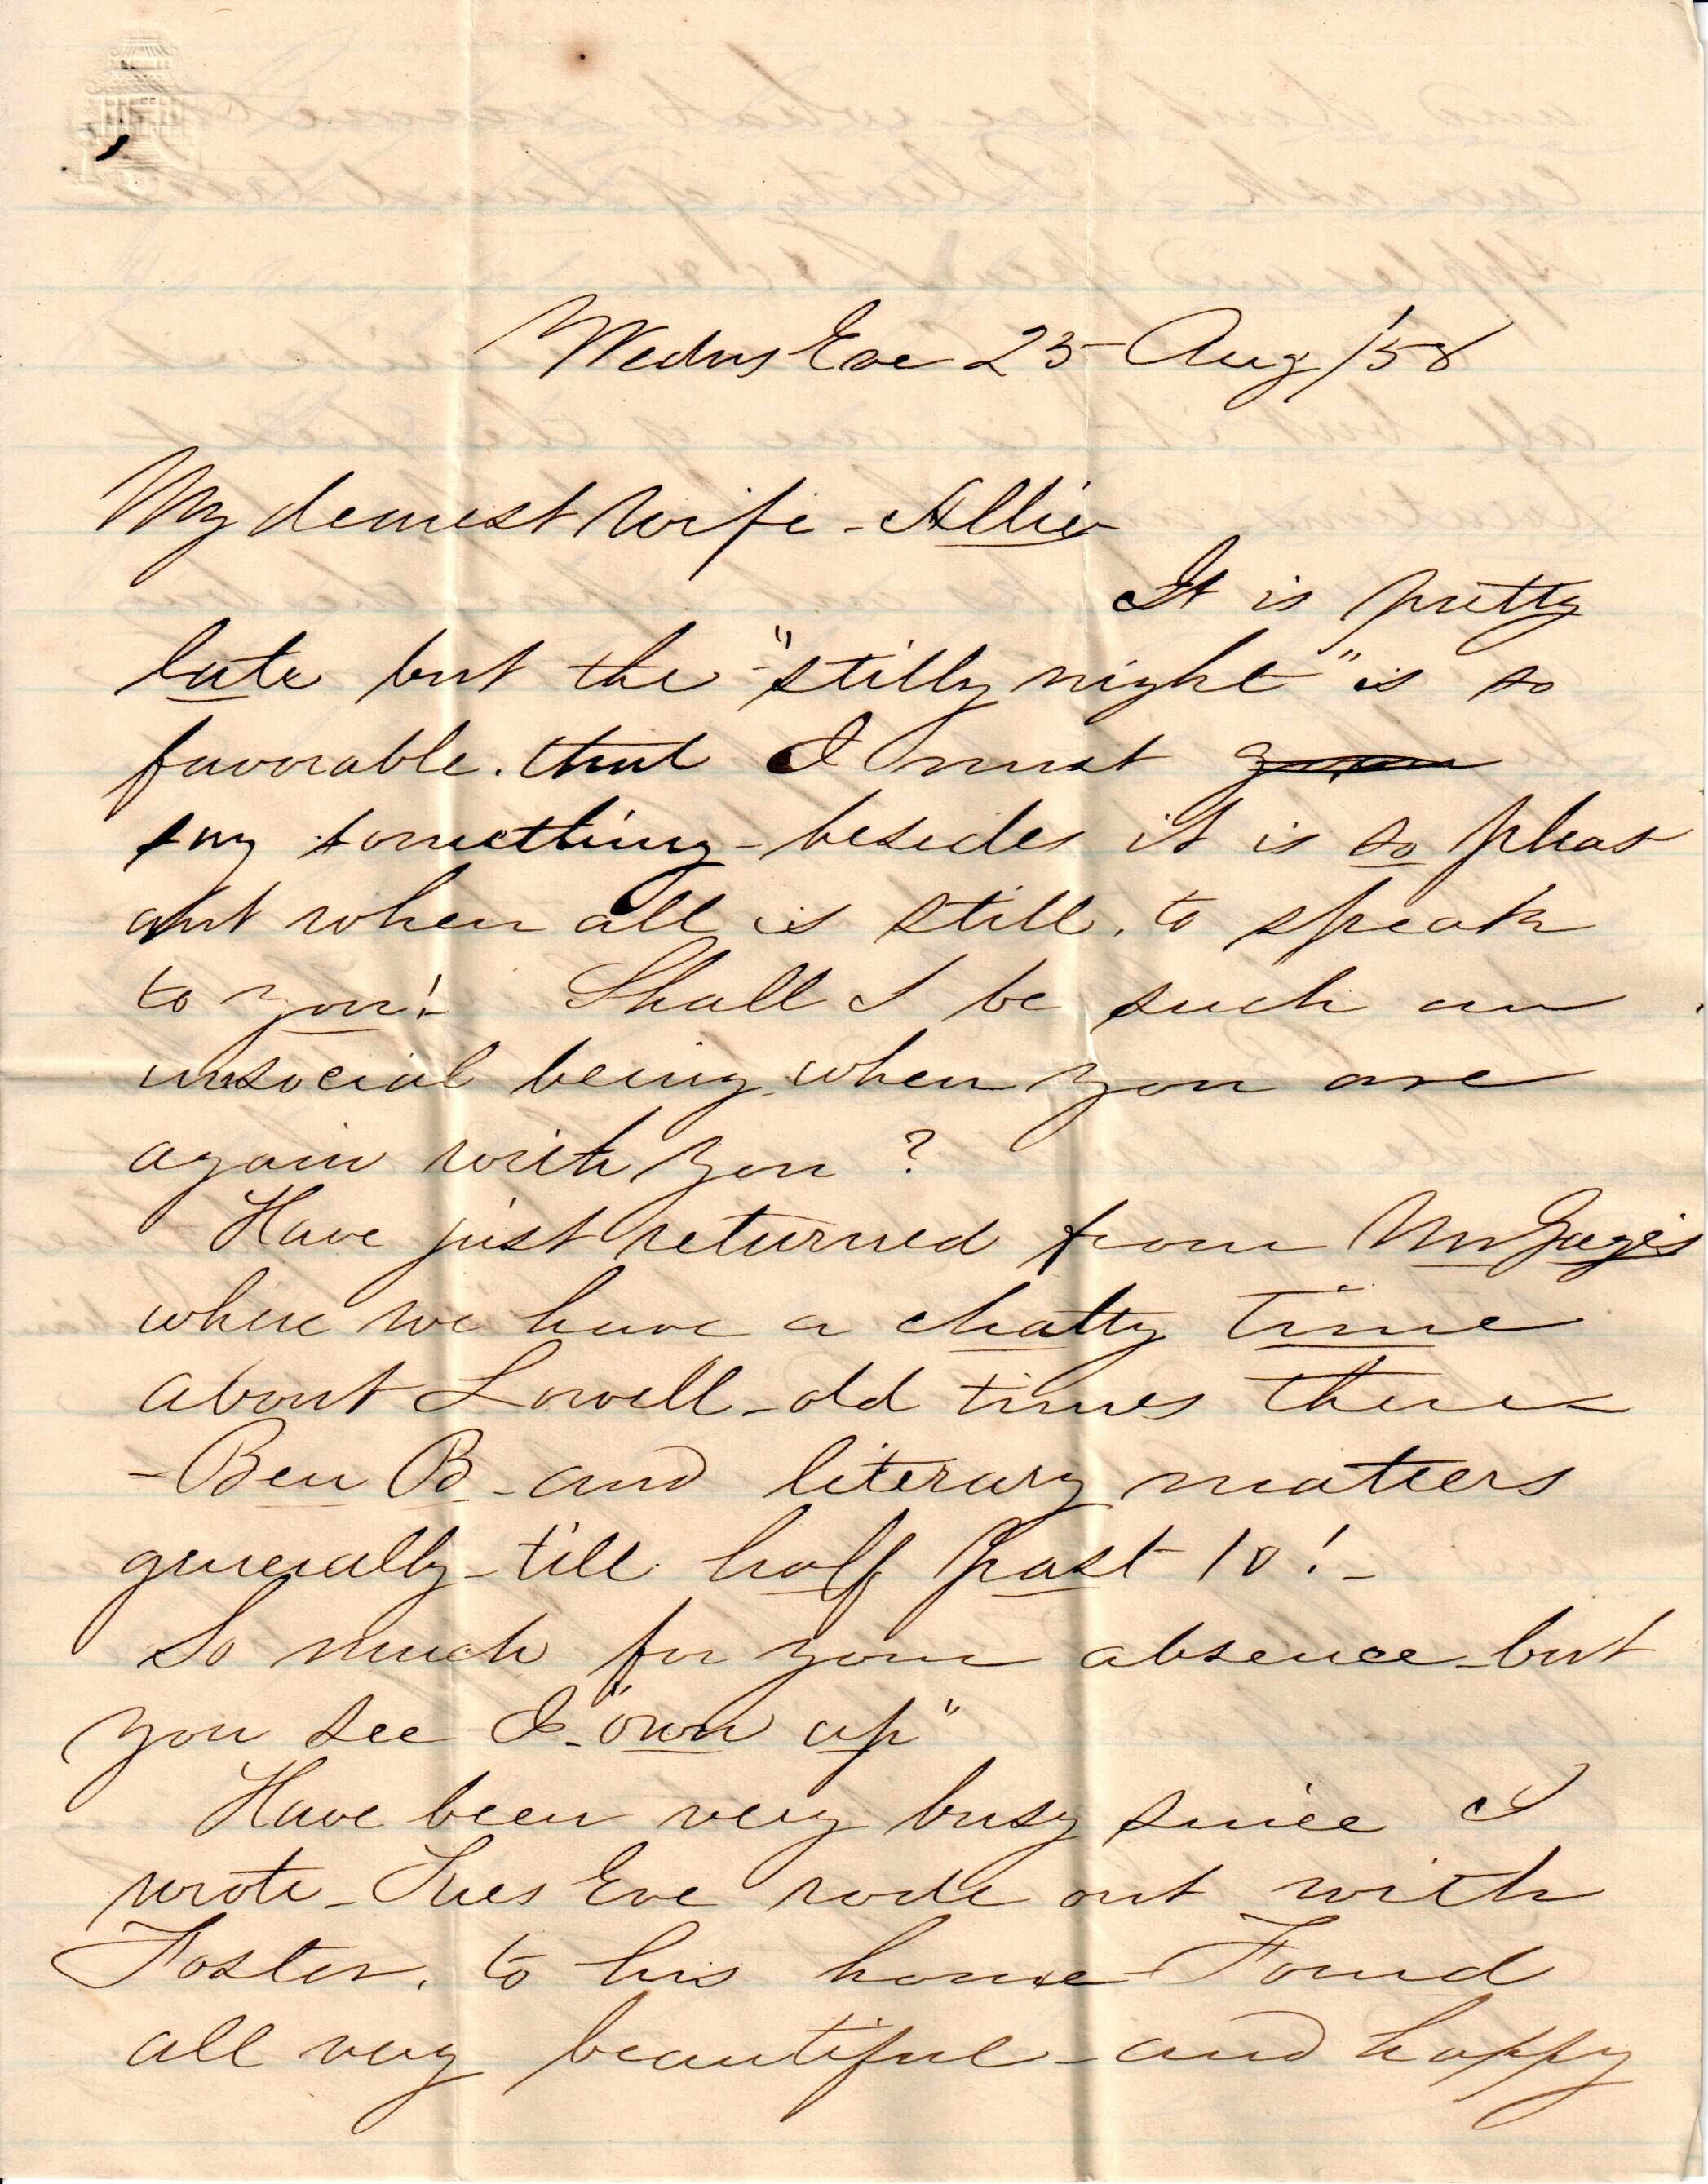 Wedns Eve 25 Aug /58
My dearest wife - Allie
It is pretty
late but the "stilly night" is so
favorable. that I must
say something - besides it is so pleas
ant when all is still, to speak
to you! - Shall I be such an
unsocial being when you are
again with you ?
Have just returned from Mr Gages
where we have a chatty time
about Lowell - old times there -
- Ben B - and literary matters
generally - till half past 10! -
So much for your absence - but
you see I - "own up"
Have been very busy since I
wrote - Tues Eve rode out with
Foster, to his home - Found
all very beautiful - and happy